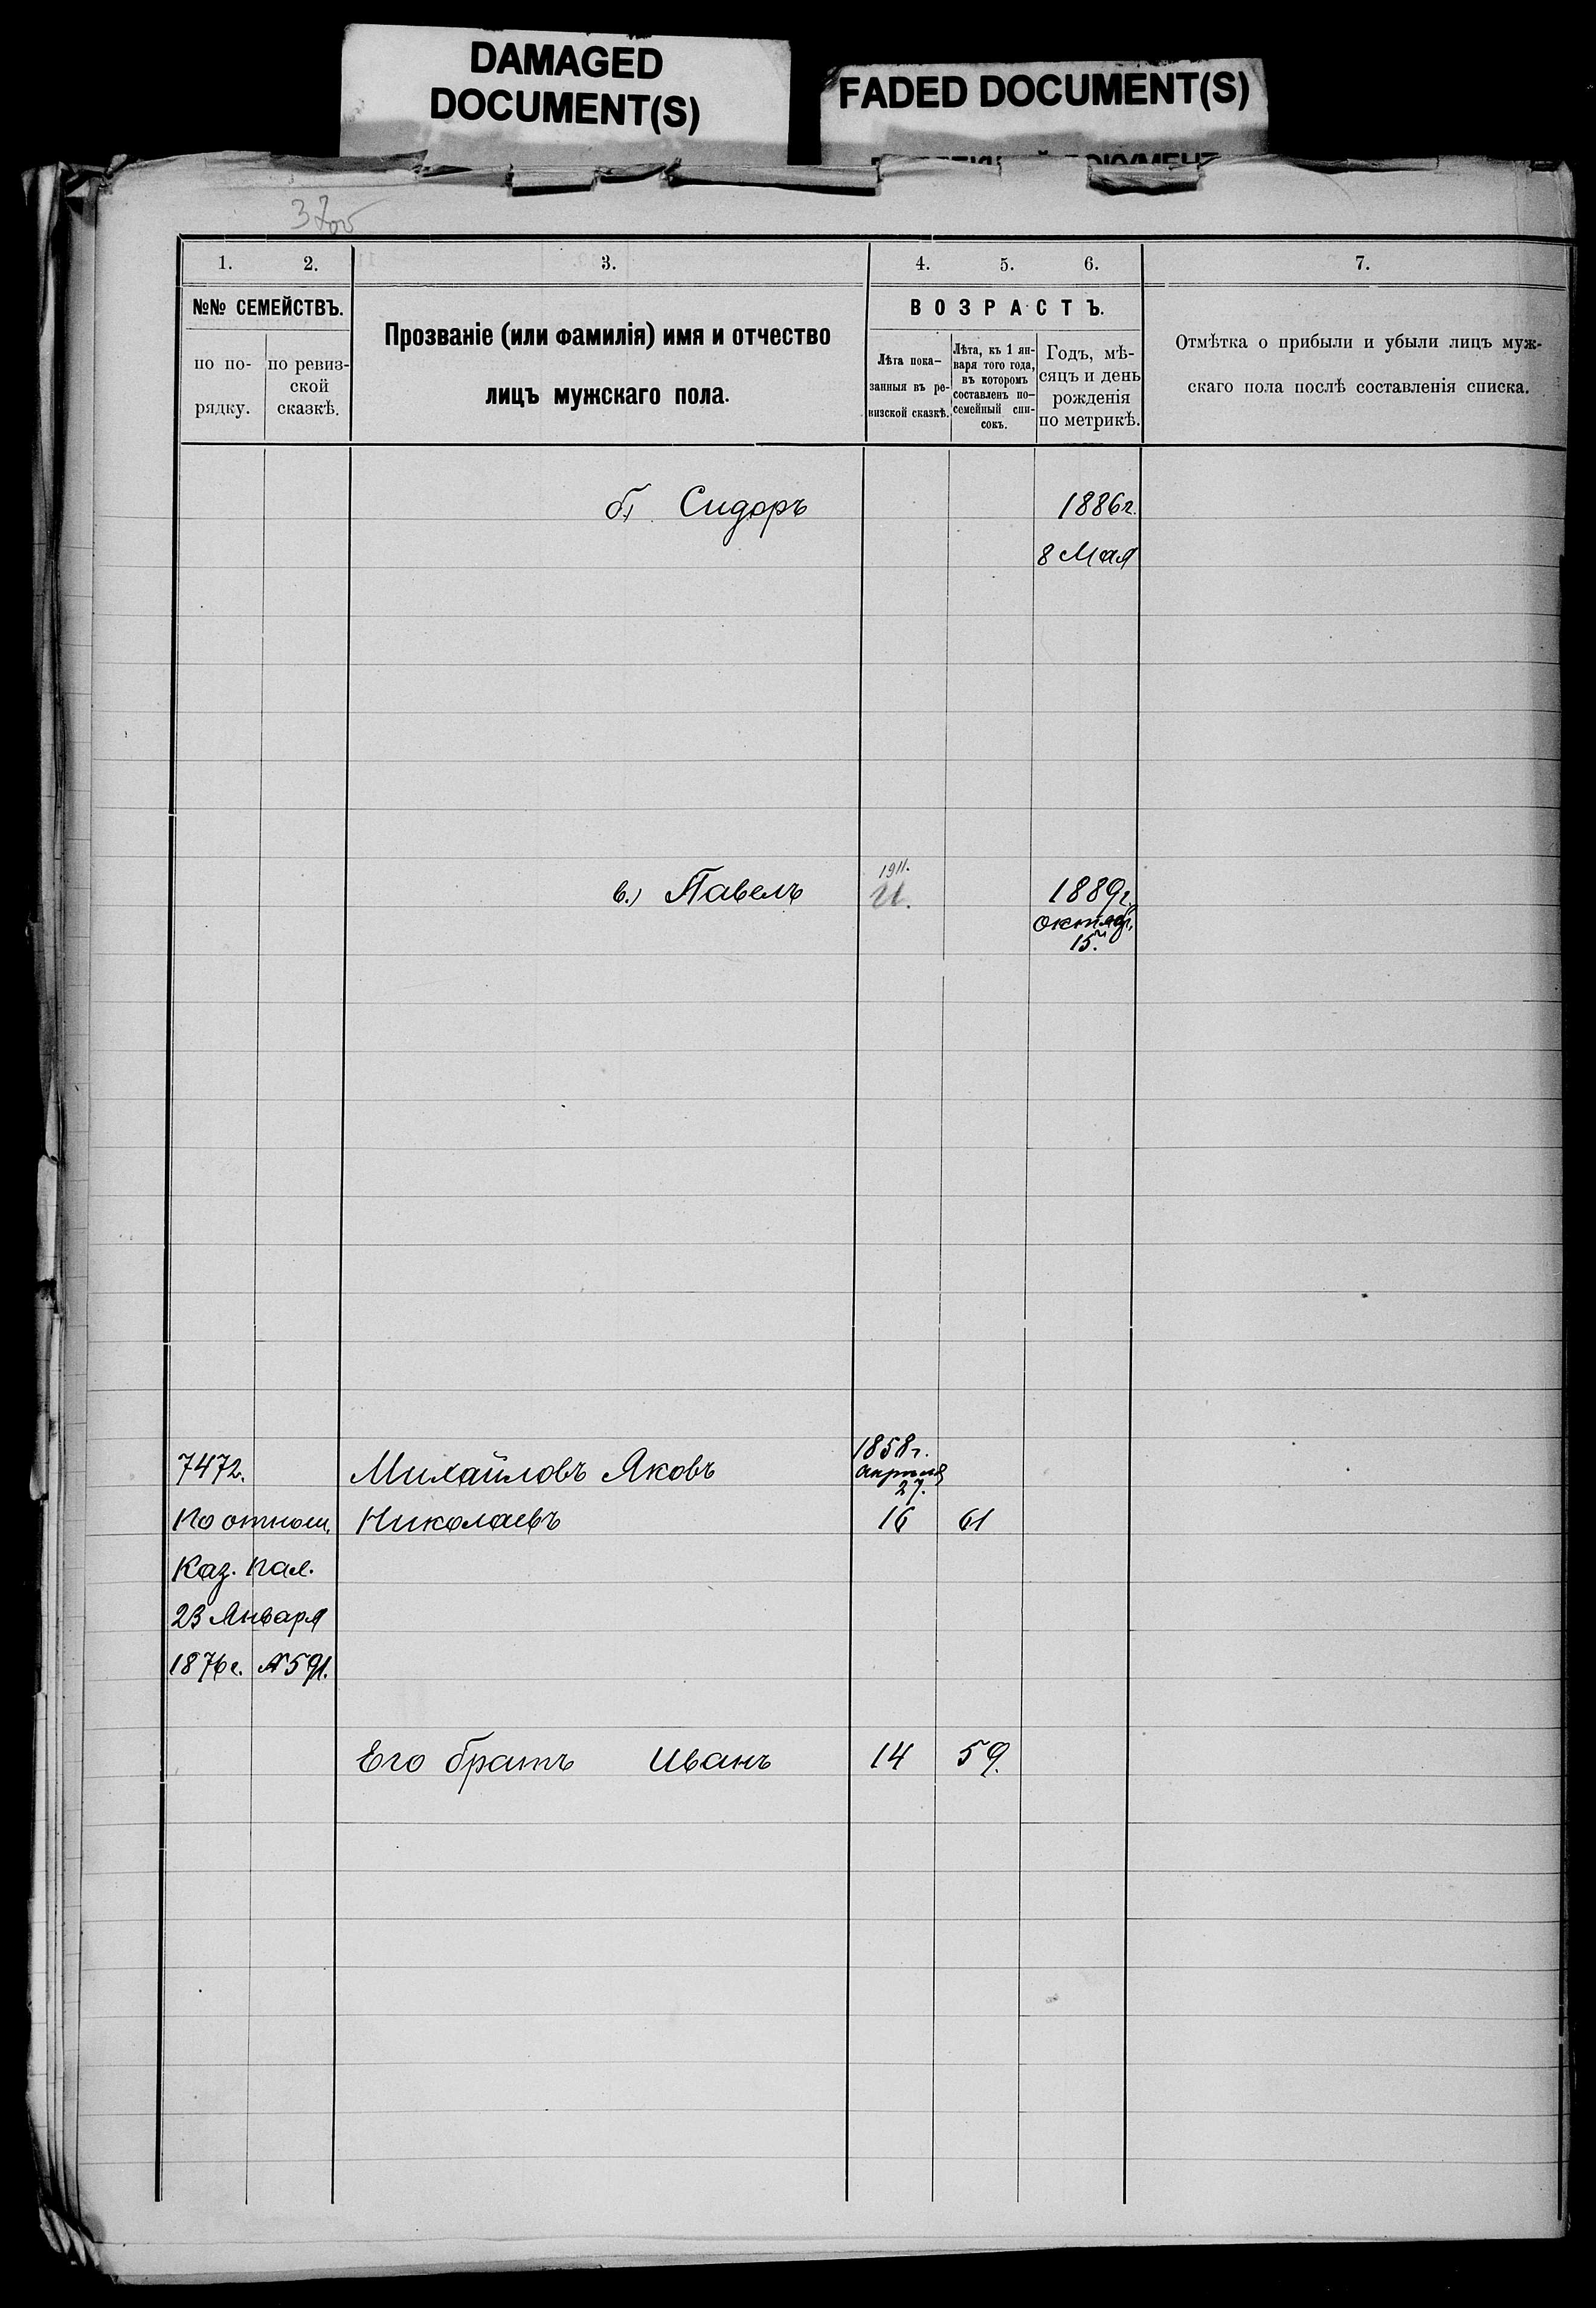 DAMAGED
DOCUMENT(S)
FADED DOCUMENT(S)
37об
1. 2. 3. 4. 5. 6. 7.
№№ СЕМЕЙСТВЪ.
по по-
рядку.
по ревиз-
ской
сказкѣ.
Прозваніе (или фамилія) имя и отчество
лицъ мужскаго пола.
ВОЗРАСТЪ.
Лѣта пока-
занныя въ ре-
визской сказкѣ.
Лѣта, къ 1 ян-
варя того года,
въ которомъ
составленъ по-
семейный спи-
сокъ.
Годъ, мѣ-
сяцъ и день
рожденія
по метрикѣ.
Отмѣтка о прибыли и убыли лицъ муж-
скаго пола послѣ составленія списка.
б) Сидоръ 1886г.
8 Мая
1911.
в.) Павелъ И. 1889г.
октяб.
15.
1858г.
7472. Михайловъ Яковъ апрѣля
27.
По отнош. Николаевъ 16 61
Каз. Пал.
23 Января
1876г. № 591.
Его братъ Иванъ 14 59.